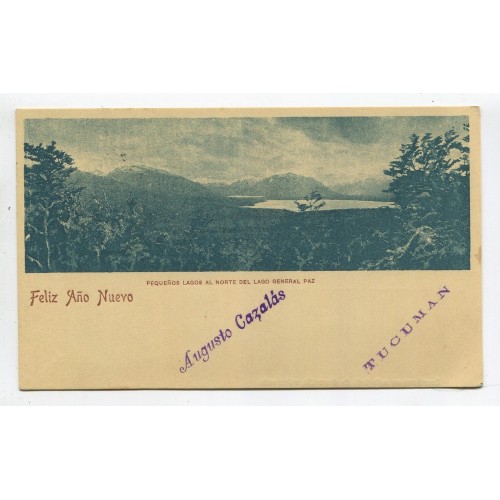 PEQUEÑOS LAGOS AL NORTE DEL LAGO GENERAL PAZ
Feliz Año Nuevo
Augusto Cazalás
TUCUMAN